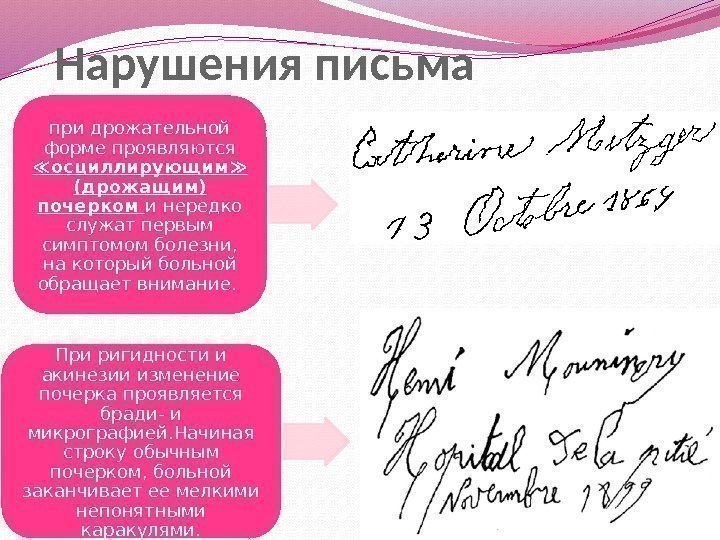 Нарушения письма
при дрожательной
форме проявляются
≪осциллирующим≫
(дрожащим)
почерком и нередко
служат первым
симптомом болезни,
на который больной
обращает внимание.
Catherine Metzger
13 Octobre 1869
При ригидности и
акинезии изменение
почерка проявляется
бради- и
микрографией.Начиная
строку обычным
почерком, больной
заканчивает ее мелкими
непонятными
каракулями.
Henri
Hopital de la pitié
Novembre 1899